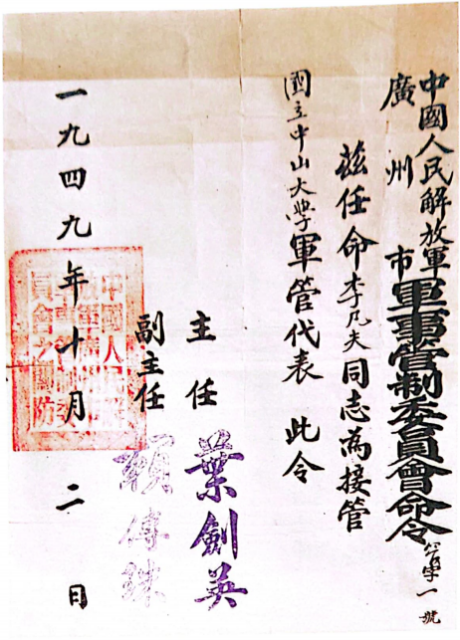 中國人民解放軍
廣州市
軍事管制委員會命令 一號
茲任命李凡夫同志為接管
國立中山大學軍管代表 此令
主任 葉劍英
副主任 賴傳珠
一九四九年十月二日
中國人民解
員會之關防